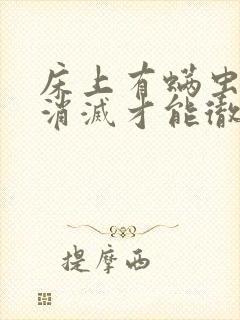 床上有螨虫
消滅才能徹
提摩西